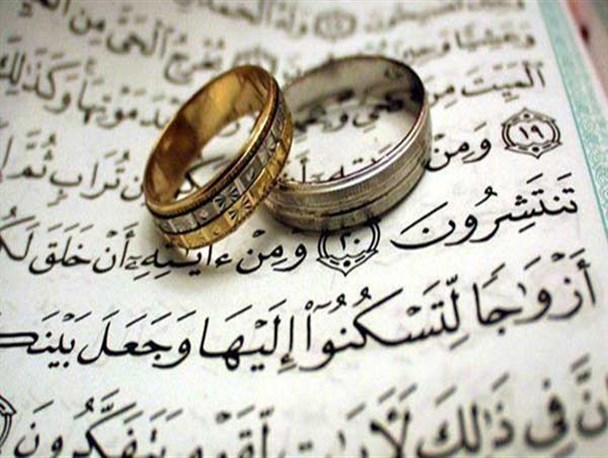 وَلَهُ ٱلْحَمْدُ
وَعَشِيًّا وَحِينَ يُخْرِجُ ٱلْحَىَّ مِنَ
ٱلْمَيِّتَ مِنَ وَيُحْىِ بَعْدَ مَوْتِهَا وَكَذَٰلِكَ
١٩ وَمِنْ مِّن تُرَابٍ ثُمَّ
تَنتَشِرُونَ ٢٠ وَمِنْ ءَايَٰتِهِۦٓ أَنْ خَلَقَ لَكُ
أَزْوَٰجًا لِّتَسْكُنُوٓا۟ إِلَيْهَا وَجَعَلَ بَيْنَك
نَّ فِى ذَٰلِكَ لَءَايَٰتٍ لِّقَوْمٍ يَتَفَكَّرُونَ